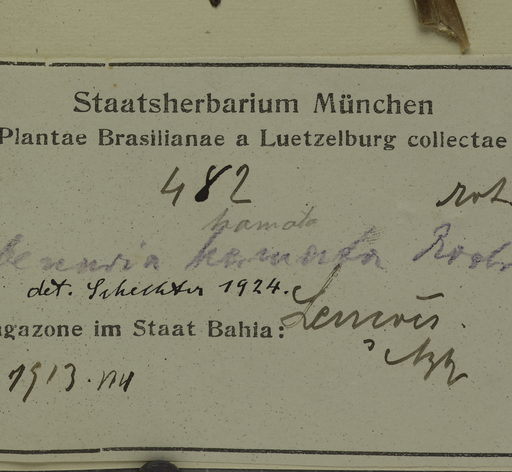 Staatsherbarium München
Plantae Brasilianae a Luetzelburg collectae
482 rot
hamata
benaria hamata Rodr
det. Schlechter 1924.
agazone im Staat Bahia:
1913.